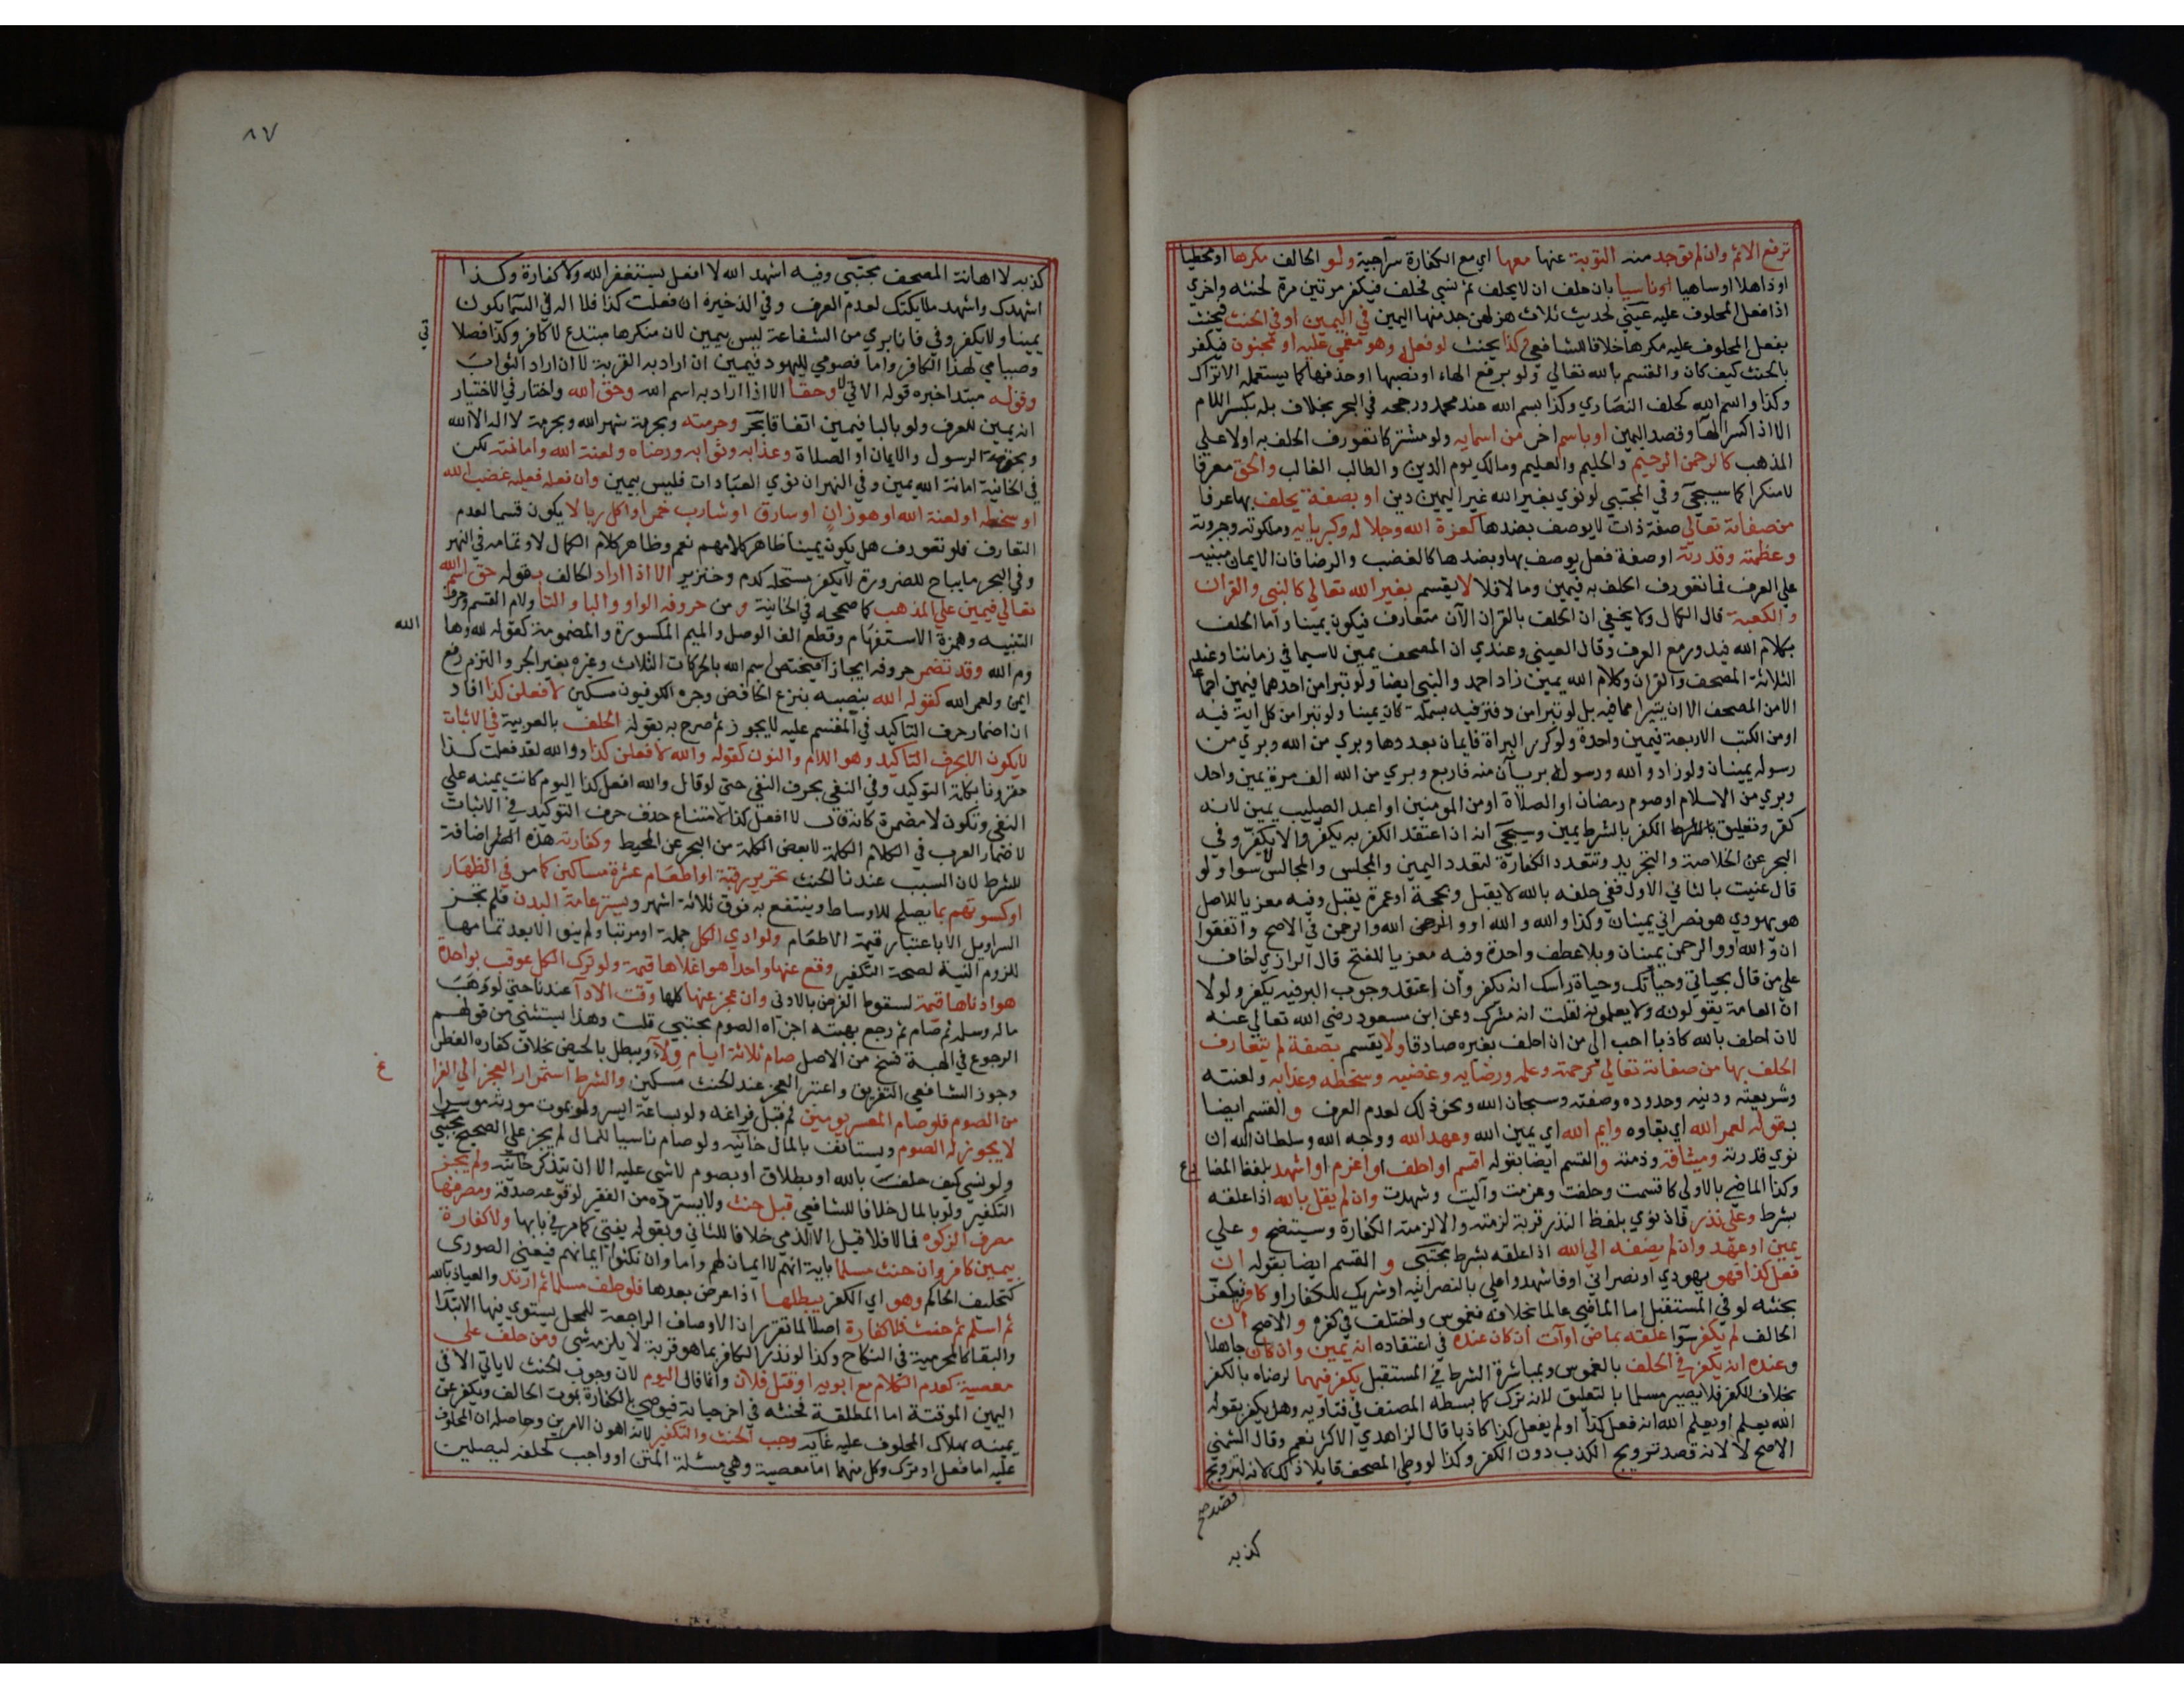 ترفع الاثم وان لم توجد منه التوبة عنها معها اي مع الكفارة سراجية ولو الحالف مكرها او مخطيا
او ذاهلا او ساهيا او ناسيا بان حلف ان لا يحلف ثم نسي فحلف فيكفر مرتين مرة لحنثه واخري
اذا فعل المحلوف عليه عيني لحديث ثلاث هزلهن جد منها اليمين في اليمين او في الحنث فيحنث
بفعل المحلوف عليه مكرها خلافا للشافعي وكذا يحنث لو فعله وهو مغمي عليه او مجنون فيكفر
بالحنث كيف كان والقسم بالله تعالي ولو برفع الهاء او نصبها او حذفها كما يستعمله الاتراك
وكذا واسم الله كحلف النصاري وكذا بسم الله عند محمد ورجحه في البحر بخلاف بله بكسر اللام
الا اذا كسر الها وقصد اليمين او باسم اخر من اسمايه ولو مشتركا تعورف الحلف به اولا علي
المذهب كالرحمن الرحيم والحليم والعليم ومالك يوم الدين والطالب الغالب والحق معرفا
لا منكرا كما سيجي وفي المجتبي لو نوي بغير الله غير اليمين دين او بصفة يحلف بها عرفا
من صفاته تعالي صفة ذات لا يوصف بضدها كعزة الله وجلاله وكبريايه وملكوته وجبروته
وعظمته وقدرته او صفة فعل يوصف بها وبضدها كالغضب والرضا فان الايمان مبنية
علي العرف فما تعورف الحلف به فيمين وما لا فلا لا يقسم بغير الله تعالي كالنبي والقران
والكعبة قال الكمال ولا يخفي ان الحلف بالقران الآن متعارف فيكون يمينا واما الحلف
بكلام الله فيدور مع العرف وقال العيني وعندي ان المصحف يمين لاسيما في زماننا وعند
الثلاثة المصحف والقران وكلام الله يمين زاد احمد والنبي ايضا ولو تبرا من احدهما فيمين اجماعا
الا من المصحف الا ان يتبرا مما فيه بل لو تبرا من دفتر فيه بسملة كان يمينا ولو تبرا من كل اية فيه
او من الكتب الاربعة فيمين واحدة ولو كرر البراة فايمان بعددها وبري من الله وبري من
رسوله يمينان ولو زاد والله ورسوله بريآن منه فاربع وبري من الله الف مرة يمين واحد
وبري من الاسلام او صوم رمضان او الصلاة او من المومنين او اعبد الصليب يمين لانه
كفر وتعليق الكفر بالشرط يمين وسيجي انه ان اعتقد الكفر به يكفر والا يكفر وفي
البحر عن الخلاصة والتجريد وتتعدد الكفارة لتعدد اليمين والمجلس والمجالس سوا ولو
قال عنيت بالثاني الاول ففي حلفه بالله لا يقبل وبحجة او عمرة يقبل وفيه معزيا للاصل
هو يهودي هو نصراني يمينان وكذا والله والله او والرحمن في الاصح واتفقوا
ان والله او والرحمن يمينان وبلا عطف واحدة وفيه معزيا للفتح قال الرازي اخاف
علي من قال بحياتي وحياتك وحياة راسك انه يكفر وان اعتقد وجوب البر فيه يكفر ولولا
ان العامة يقولونه ولا يعلمونه لقلت انه مشرك وعن ابن مسعود رضي الله تعالي عنه
لان احلف بالله كاذبا احب الي من ان احلف بغيره صادقا ولا يقسم بصفة لم يتعارف
الحلف بها من صفاته تعالي كرحمته وعلمه ورضايه وغضبه وسخطه وعذابه ولعنته
وشريعته ودينه وحدوده وصفته وسبحان الله ونحو ذلك لعدم العرف و القسم ايضا
بقوله لعمر الله اي بقاوه وايم الله اي يمين الله وعهد الله ووجه الله وسلطان الله ان
نوي قدرته وميثاقه وذمته والقسم ايضا بقوله اقسم او احلف او اعزم او اشهد بلفظ المضا
رع
وكذا الماضي بالاولي كاقسمت وحلفت وعزمت وآليت وشهدت وان لم يقل بالله اذا علقه
بشرط وعلي نذر فان نوي بلفظ النذر قربة لزمته والا لزمته الكفارة وسيتضح و علي
يمين او عهد وان لم يضفه الي الله اذا علقه بشرط مجتبي و القسم ايضا بقوله ان
فعل كذا فهو يهودي او نصراني او فاشهدوا علي بالنصرانية او شريك للكفار او كافر فيكفر
بحنثه لو في المستقبل اما الماضي عالما بخلافه فغموس واختلف في كفره و الاصح ان
الحالف لم يكفر سوا علقه بماض او آت ان كان عنده في اعتقاده انه يمين وان كان جاهلا
وعنده انه يكفر في الحلف بالغموس وبمباشرة الشرط في المستقبل يكفر فيهما لرضاه بالكفر
بخلاف الكفر فلا يصير مسلما بالتعليق لانه ترك كما بسطه المصنف في فتاويه وهل يكفر بقوله
الله يعلم او يعلم الله انه فعل كذا او لم يفعل كذا كاذبا قال الزاهدي الاكثر نعم وقال الشمني
الاصح لا لانه قصد ترويج الكذب دون الكفر وكذا لو وطي المصحف قايلا ذلك لانه لترويج
كذبه
٨٧
كذبه لا اهانة المصحف مجتبي وفيه اشهد الله لا افعل يستغفر الله ولا كفارة وكذا
اشهدك واشهد ملايكتك لعدم العرف وفي الذخيرة ان فعلت كذا فلا اله في السما يكون
يمينا ولا يكفر وفي فانا بري من الشفاعة ليس بيمين لان منكرها مبتدع لا كافر وكذا فصلا
تي
وصيامي لهذا الكافر واما فصومي لليهود فيمين ان اراد به القربة لا ان اراد الثواب
وقوله مبتدا خبره قوله الاتي لا وحقا الا اذا اراد به اسم الله وحق الله واختار في الاختيار
انه يمين للعرف ولو بالبا فيمين اتفاقا بحر وحرمته وبحرمة شهر الله وبحرمة لا اله الا الله
وبحق الرسول والايمان او الصلاة وعذابه وثوابه ورضاه ولعنة الله وامانته لكن
في الخانية امانة الله يمين وفي النهر ان نوي العبادات فليس بيمين وان فعله فعليه غضب الله
او سخطه او لعنة الله او هو زان او سارق او شارب خمر او اكل ربا لا يكون قسما لعدم
التعارف فلو تعورف هل يكون يمينا ظاهر كلامهم نعم وظاهر كلام الكمال لا وتمامه في النهر
وفي البحر ما يباح للضرورة لا يكفر مستحله كدم وخنزير الا اذا اراد الحالف بقوله حق اسم الله
تعالي فيمين علي المذهب كما صححه في الخانية و من حروفه الواو والبا والتا ولام القسم وحرف
التنبيه وهمزة الاستفهام وقطع الف الوصل والميم المكسورة والمضمومة كقوله لله وها
الله
وم الله وقد تضمر حروفه ايجازا فيختص اسم الله بالحركات الثلاث وغيره بغير الجر والتزم رفع
ايمن ولعمر الله كقوله الله بنصبه بنزع الخافض وجره الكوفيون مسكين لافعلن كذا افاد
ان اضمار حرف التاكيد في المقسم عليه لا يجوز ثم صرح به بقوله الحلف بالعربية في الاثبات
لا يكون الا بحرف التاكيد وهو اللام والنون كقوله والله لافعلن كذا ووالله لقد فعلت كذا
مقرونا بكلمة التوكيد وفي النفي بحرف النفي حتي لو قال والله افعل كذا اليوم كانت يمينه علي
النفي وتكون لا مضمرة كانه قال لا افعل كذا لامتناع حذف حرف التوكيد في الاثبات
لاضمار العرب في الكلام الكلمة لا بعض الكلمة من البحر عن المحيط وكفارته هذه اضافة
للشرط لان السبب عندنا الحنث تحرير رقبة او اطعام عشرة مساكين كما مر في الظهار
او كسوتهم بما يصلح للاوساط وينتفع به فوق ثلاثة اشهر ويستر عامة البدن فلم يجز
السراويل الا باعتبار قيمة الاطعام ولو ادي الكل جملة او مرتبا ولم ينو الا بعد تمامها
للزوم النية لصحة التكفير وقع عنها واحد هو اغلاها قيمة ولو ترك الكل عوقب بواحدة
هو ادناها قيمة لسقوط الفرض بالادني وان عجز عنها كلها وقت الادآ عندنا حتي لو وهب
ماله وسلمه ثم صام ثم رجع بهبته اجزاه الصوم مجتبي قلت وهذا يستثني من قولهم
الرجوع في الهبة فسخ من الاصل صام ثلاثة ايام ولآء ويبطل بالحيض بخلاف كفارة الفطر
وجوز الشافعي التفريق واعتبر العجز عند الحنث مسكين والشرط استمرار العجز الي الفرا
غ
من الصوم فلو صام المعسر يومين ثم قبل فراغه ولو بساعة ايسر ولو بموت مورثه موسرا
لا يجوز له الصوم ويستانف بالمال خانية ولو صام ناسيا للمال لم يجز علي الصحيح مجتبي
ولو نسي كيف حلف بالله او بطلاق او بصوم لا شي عليه الا ان يتذكر خانية ولم يجز
التكفير ولو بالمال خلافا للشافعي قبل حنث ولا يسترده من الفقير لوقوعه صدقة ومصرفها
مصرف الزكوة فما لا فلا قيل الا الذمي خلافا للثاني وبقوله يفتي كما مر في بابها ولا كفارة
بيمين كافر وان حنث مسلما باية انهم لا ايمان لهم واما وان نكثوا ايمانهم فيعني الصوري
كتحليف الحاكم وهو اي الكفر يبطلها اذا عرض بعدها فلو حلف مسلما ثم ارتد والعياذ بالله
ثم اسلم ثم حنث فلا كفارة اصلا لما تقرر ان الاوصاف الراجعة للمحل يستوي فيها الابتدا
والبقا كالمحرمية في النكاح وكذا لو نذر الكافر بما هو قربة لا يلزمه شي ومن حلف علي
معصية كعدم الكلام مع ابويه او قتل فلان وانما قال اليوم لان وجوب الحنث لا ياتي الا في
اليمين الموقتة اما المطلقة فحنثه في اخر حياته فيوصي بالكفارة بموت الحالف ويكفر عن
يمينه بهلاك المحلوف عليه غاية وجب الحنث والتكفير لانه اهون الامرين وحاصله ان المحلوف
عليه اما فعل او ترك وكل منهما اما معصية وهي مسئلة المتن او واجب كحلفه ليصلين